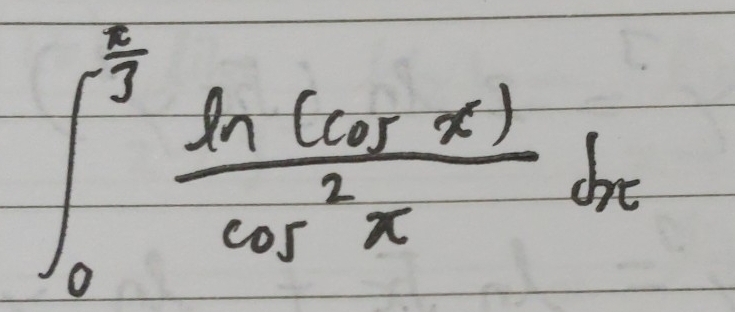 \int_{0}^{\frac{\pi}{3}} \frac{\ln (\cos x)}{\cos^{2} x} dx